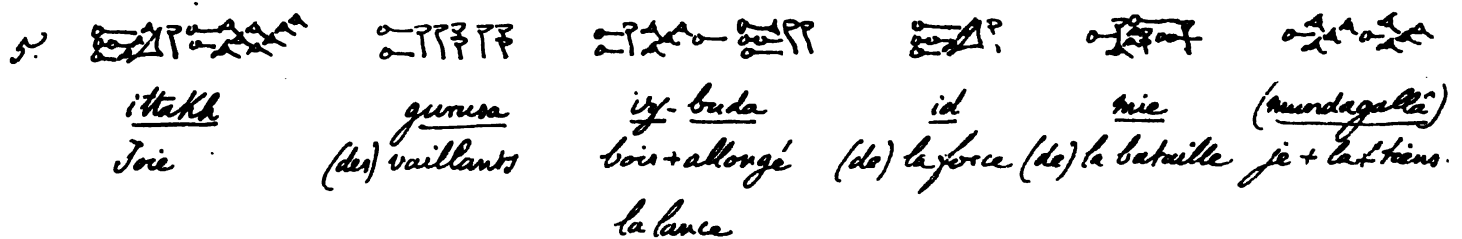 5.
ittakh gurusa iz- buda id mie (mundagallâ)
Joie (des) vaillants bois + allongé (de) la force (de) la bataille je + la + tiens.
la lance